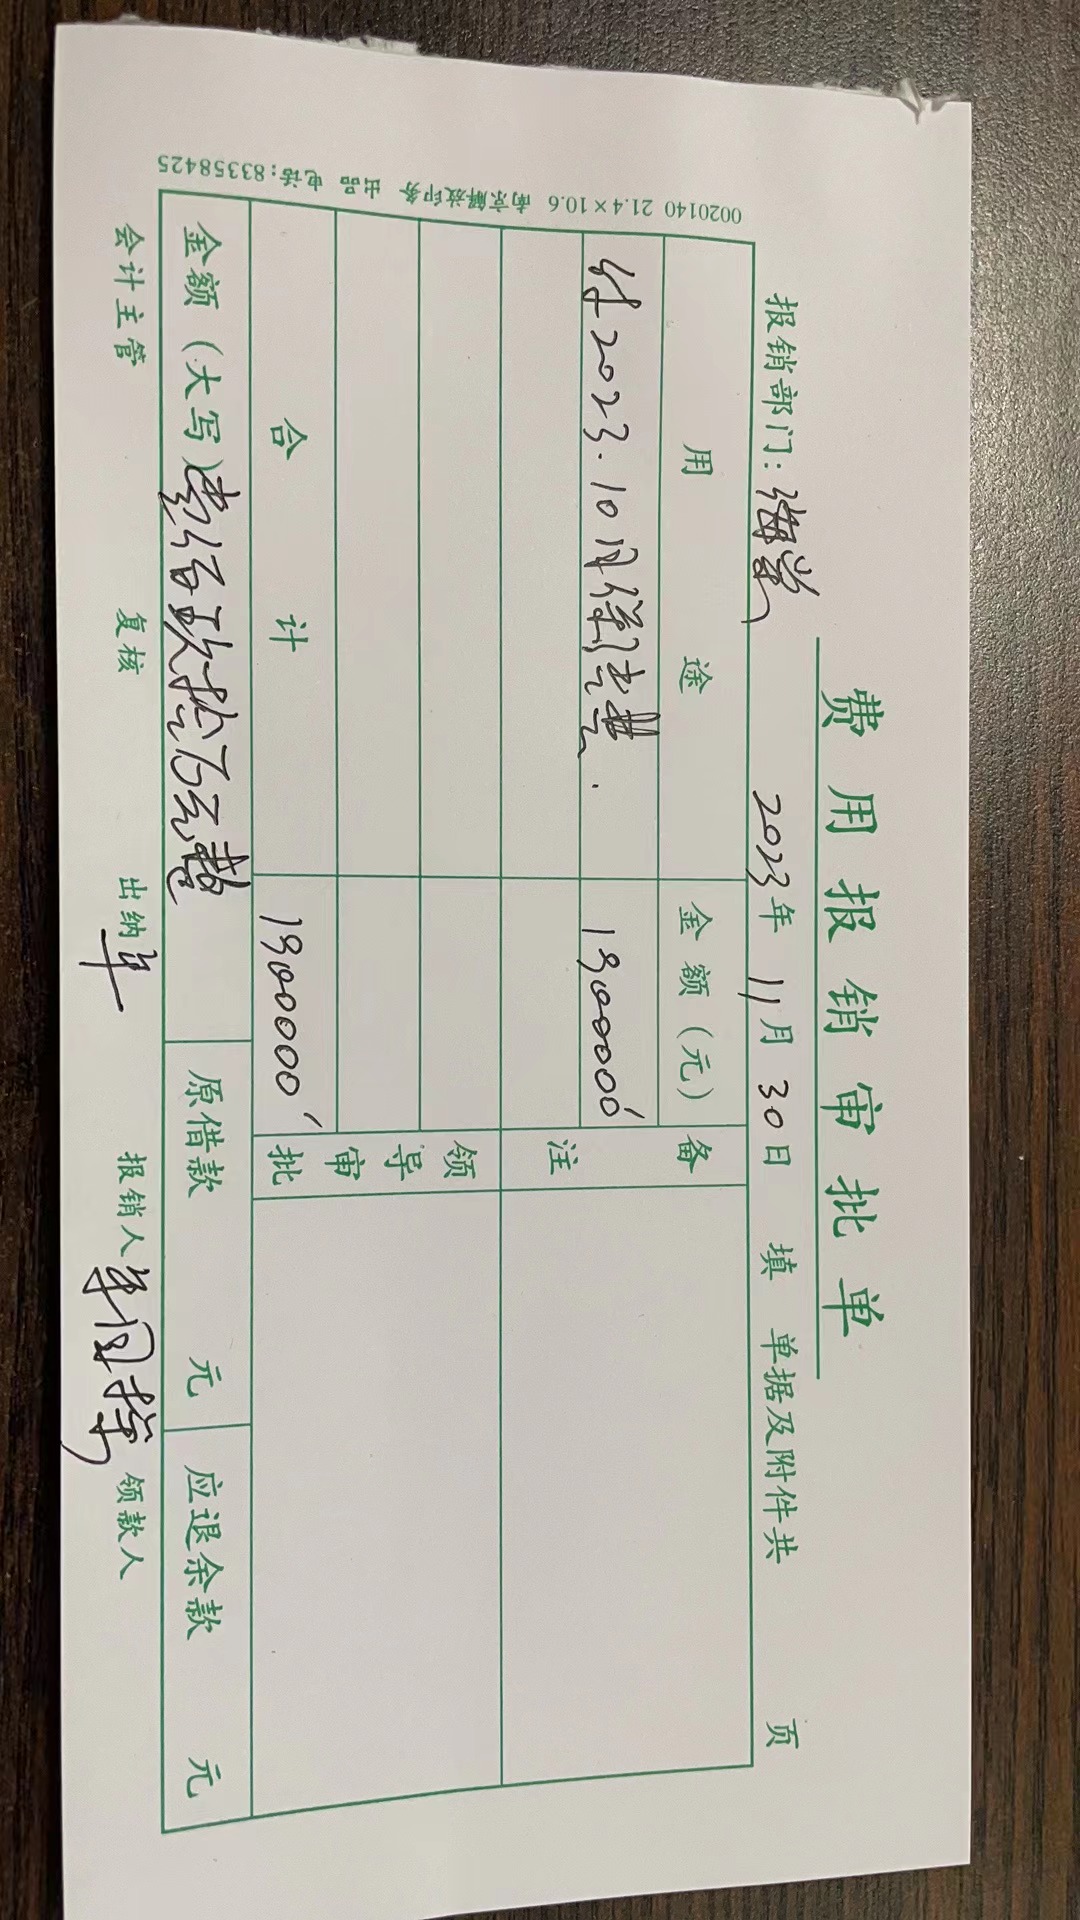 费用报销审批单
报销部门: 2023年 11月 30日 填 单据及附件共 页
用途 金额(元) 备注
付2023.10月保洁费. 1900000
领导审批
合计 1900000
金额(大写)壹佰玖拾万元整 原借款 元 应退余款 元
会计主管 复核 出纳 报销人 领款人
0020140 21.4×10.6 南京解放印务 出品 电话:83358425